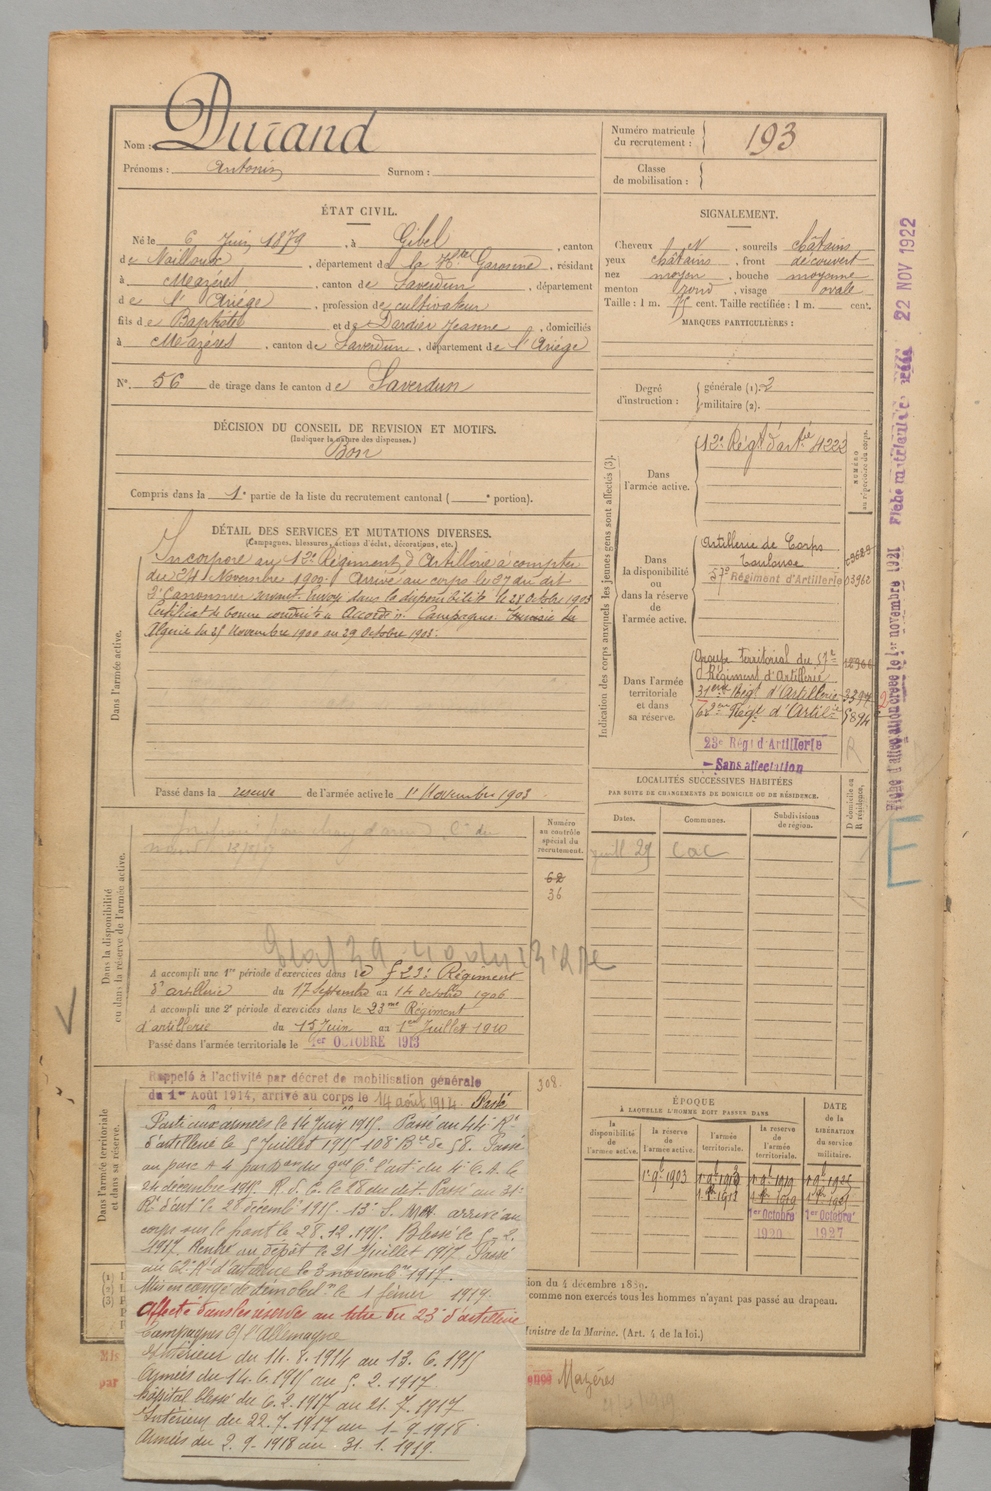 Nom : Durand
Prénoms : Antonin Surnom :
Numéro matricule du recrutement : 193
Classe de mobilisation :
ÉTAT CIVIL.
Né le 6 Juin 1879, à Gibel, canton
de Nailloux, département de la Hte Garonne, résidant
à Mazères, canton de Saverdun, département
de l'Ariège, profession de cultivateur
fils de Baptiste et de Dardier Jeanne, domiciliés
à Mazères, canton de Saverdun, département de l'Ariège
N° 56 de tirage dans le canton de Saverdun
SIGNALEMENT.
Cheveux N, sourcils châtains
yeux châtains, front découvert
nez moyen, bouche moyenne
menton rond, visage ovale
Taille : 1 m. 75 cent. Taille rectifiée : 1 m. cent.
MARQUES PARTICULIÈRES :
Degré d'instruction : générale (1). 2
militaire (2).
DÉCISION DU CONSEIL DE REVISION ET MOTIFS.
(Indiquer la nature des dispenses.)
Bon
Compris dans la 1e partie de la liste du recrutement cantonal ( e portion).
DÉTAIL DES SERVICES ET MUTATIONS DIVERSES.
(Campagnes, blessures, actions d'éclat, décorations, etc.)
Dans l'armée active.
Incorporé au 12e Régiment d'Artillerie à compter
du 24 Novembre 1900. Arrivé au corps le 27 du dit
2e Canonnier servant. Envoyé dans la disponibilité le 28 Octobre 1903
Certificat de bonne conduite Accordé. Campagnes:
Algérie du 25 Novembre 1900 au 29 Octobre 1903.
Passé dans la réserve de l'armée active le 1er Novembre 1903
Indication des corps auxquels les jeunes gens sont affectés (3).
NUMÉRO au répertoire du corps.
Dans l'armée active.
12e Régt d'artie 4222
Dans la disponibilité ou dans la réserve de l'armée active.
Artillerie de Corps
Toulouse
57e Régiment d'Artillerie 03962
Dans l'armée territoriale et dans sa réserve.
Groupe territorial du 57e
Régiment d'Artillerie
31eme Régt d'Artillerie
62eme Régt d'Artilie
23e Régt d'Artillerie
Sans affectation
R
LOCALITÉS SUCCESSIVES HABITÉES
PAR SUITE DE CHANGEMENTS DE DOMICILE OU DE RÉSIDENCE.
D domicile ou R résidence.
Dates. Communes. Subdivisions de région.
Numéro au contrôle spécial du recrutement.
62
36
308.
Dans la disponibilité ou dans la réserve de l'armée active.
A accompli une 1re période d'exercices dans le 23e Régiment
d'artillerie du 17 Septembre au 14 octobre 1906
A accompli une 2e période d'exercices dans le 23me Régiment
d'artillerie du 15 Juin au 1er Juillet 1910
Passé dans l'armée territoriale le 1er OCTOBRE 1913
Dans l'armée territoriale et dans sa réserve.
Rappelé à l'activité par décret de mobilisation générale
du 1er Août 1914, arrivé au corps le 14 août 1914. Passé
Parti aux armées le 14 Juin 1915. Passé au 44e Rt
d'artillerie le 5 Juillet 1915 108e Bie de 58. Passé
au parc
24 décembre 1915. R. d. C. le 28 du dit. Passé au 31e
Rt d'art. le 28 décembre 1915. 13e S. M. arrivé au
corps sur le front le 28.12.1915. Blessé le 5.2.
1917. Rentré au dépôt le 21 Juillet 1917. Passé
au 62e Rt d'artillerie le 3 novembre 1917.
Mis en congé de démobilon le 1 février 1919.
Affecté dans les réserves au titre du 23e d'artillerie
Campagnes C/ l'Allemagne
Intérieur du 14.8.1914 au 13.6.1915
Armées du 14.6.1915 au 5.2.1917
hôpital blessé du 6.2.1917 au 21.7.1917
Intérieur du 22.7.1917 au 1-9-1918
Armées du 2.9.1918 au 31.1.1919.
ÉPOQUE
À LAQUELLE L'HOMME DOIT PASSER DANS
la disponibilité de l'armée active.
la réserve de l'armée active.
l'armée territoriale.
la réserve de l'armée territoriale.
DATE de la LIBÉRATION du service militaire.
1er Octobre 1920
1er Octobre 1927
du 4 décembre 1889.
comme non exercés tous les hommes n'ayant pas passé au drapeau.
Ministre de la Marine. (Art. 4 de la loi.)
Mis
par
Mazères
22 NOV 1922
Fiche d'affectation créée le 1er novembre 1921
E